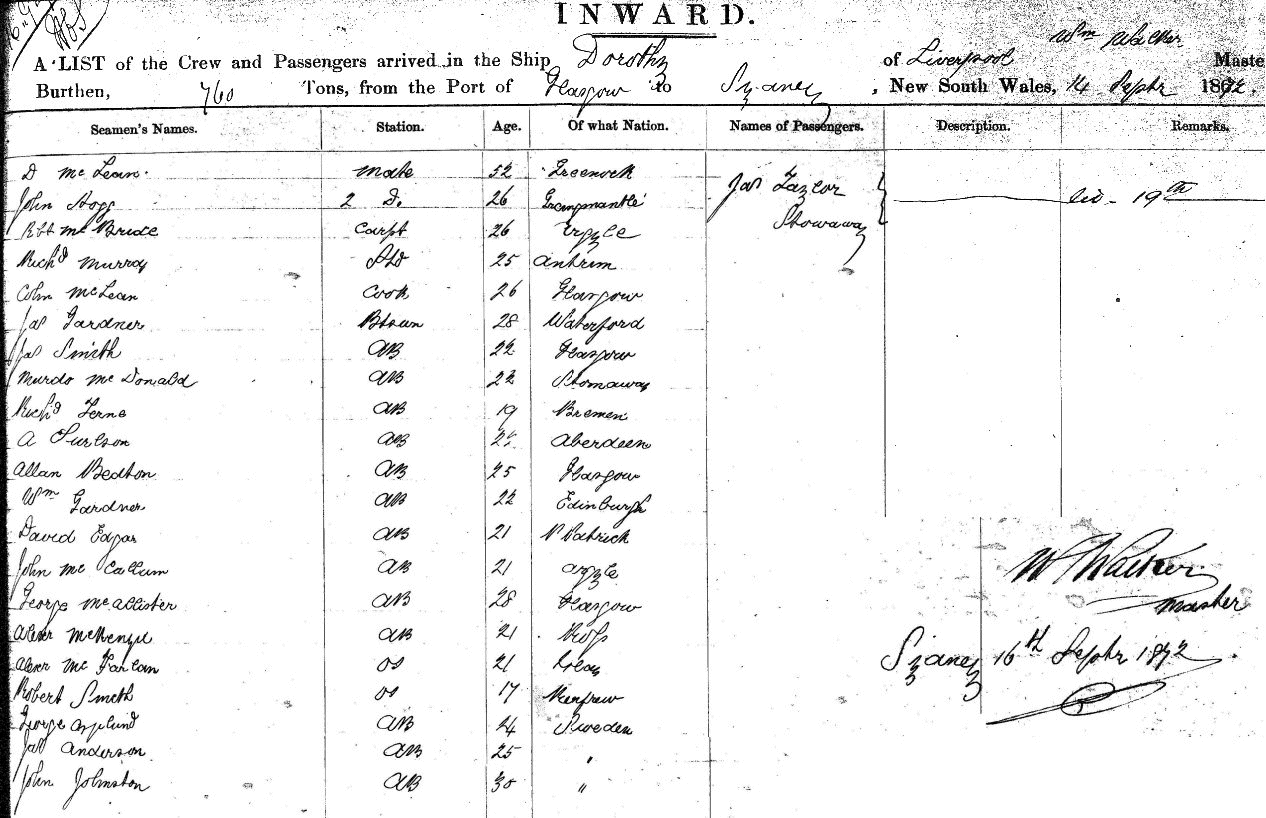 INWARD.
Wm Walker
A LIST of the Crew and Passengers arrived in the Ship Dorothy of Liverpool Maste
Burthen, 760 Tons, from the Port of Glasgow to Sydney, New South Wales, 14 Septr 1872.
Seamen's Names. Station. Age. Of what Nation. Names of Passengers. Description. Remarks.
D McLean mate 52 Greenock Jas Taylor
John Hogg 2 D. 26 19th
Robt McBride Carpt 26 Argyle Stowaway
Richd Murray Std 25 Antrim
Colin McLean Cook 26 Glasgow
Jas Gardner Btsun 28 Waterford
Jas Smith AB 22 Glasgow
Murdo McDonald AB 22 Stornaway
Richd Ferne AB 19 Bremen
A AB Aberdeen
Allan Bedton AB 25 Glasgow
Wm Gardner AB 22 Edinburgh
David Edgar AB 21 P Patrick
John McCallum AB 21 Argyle
George McAllister AB 28 Glasgow
Alexr McKenzie AB 21 Ross
Alexr McFarlan OS 21
Robert Smith OS 17 Renfrew
George Asplund AB 24 Sweden
Jas Anderson AB 25 "
John Johnston AB 30 "
W Walker
master
Sydney 16th Septr 1872